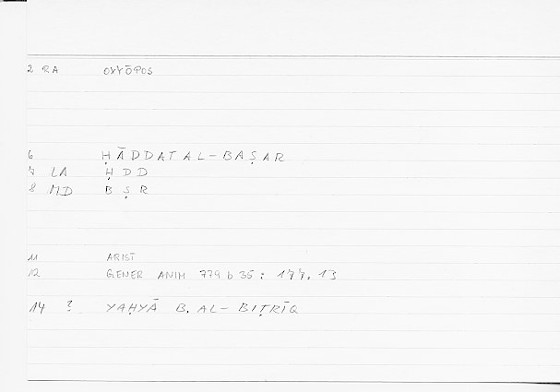 2 RA OXYŌPOS
6 ḤĀDDAT AL-BAṢAR
7 LA ḤDD
8 MD BṢR
11 ARIST
12 GENER ANIM 779 b 35 : 177, 13
14 ? YAḤYĀ B. AL-BIṬRĪQ